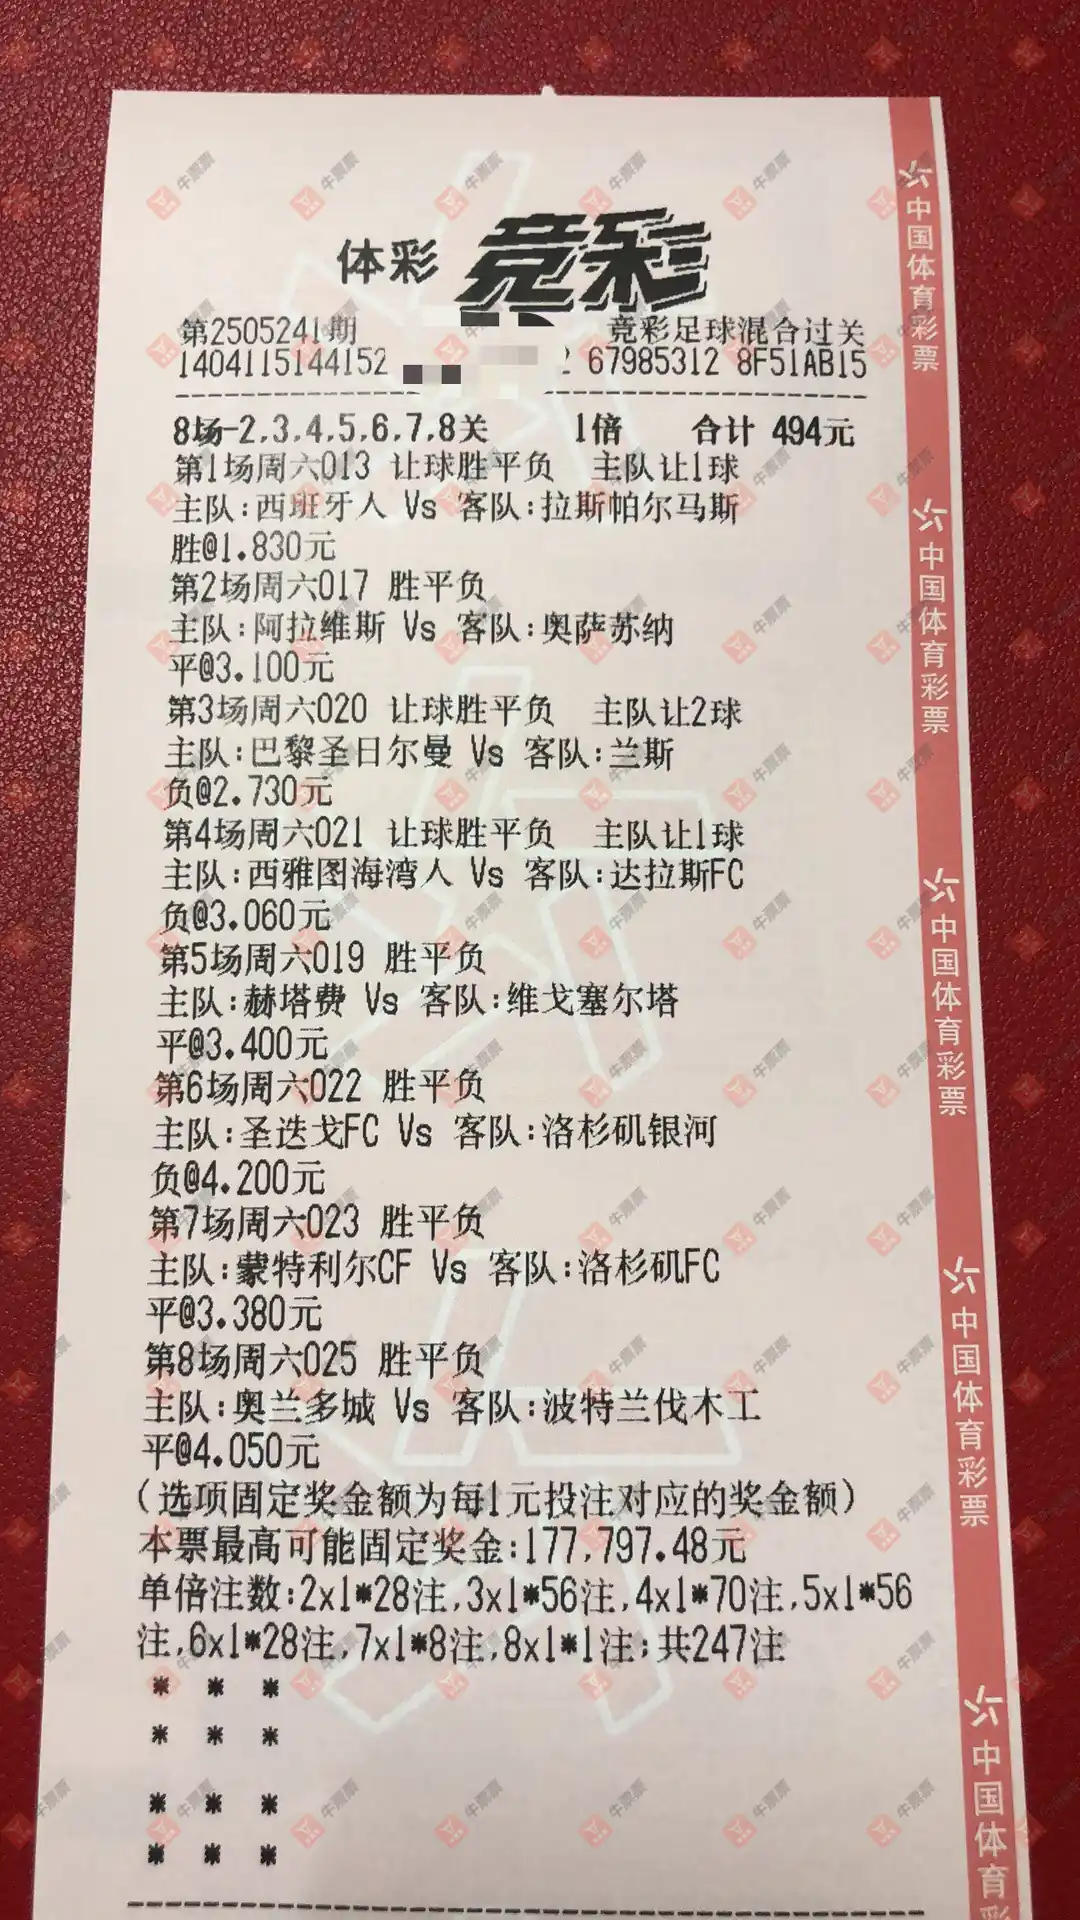 体彩 竞彩
第2505241期 竞彩足球混合过关
1404115144152 2 67985312 8F51AB15
8场-2,3,4,5,6,7,8关 1倍 合计 494元
第1场周六013 让球胜平负 主队让1球
主队:西班牙人 Vs 客队:拉斯帕尔马斯
胜@1.830元
第2场周六017 胜平负
主队:阿拉维斯 Vs 客队:奥萨苏纳
平@3.100元
第3场周六020 让球胜平负 主队让2球
主队:巴黎圣日尔曼 Vs 客队:兰斯
负@2.730元
第4场周六021 让球胜平负 主队让1球
主队:西雅图海湾人 Vs 客队:达拉斯FC
负@3.060元
第5场周六019 胜平负
主队:赫塔费 Vs 客队:维戈塞尔塔
平@3.400元
第6场周六022 胜平负
主队:圣迭戈FC Vs 客队:洛杉矶银河
负@4.200元
第7场周六023 胜平负
主队:蒙特利尔CF Vs 客队:洛杉矶FC
平@3.380元
第8场周六025 胜平负
主队:奥兰多城 Vs 客队:波特兰伐木工
平@4.050元
(选项固定奖金额为每1元投注对应的奖金额)
本票最高可能固定奖金:177,797.48元
单倍注数:2x1*28注,3x1*56注,4x1*70注,5x1*56
注,6x1*28注,7x1*8注,8x1*1注;共247注
* * *
* * *
* * *
* * *
中国体育彩票
中国体育彩票
中国体育彩票
中国体育彩票
中国体育彩
牛票票